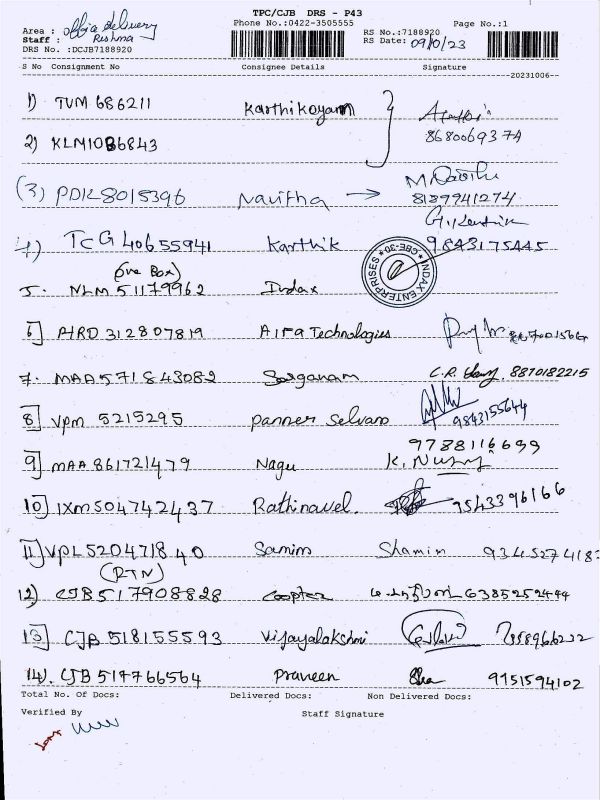 TPC/CJB DRS - P43
Phone No.:0422-3505555
Page No.:1
Area : office delivery
Staff : Reshma
DRS No. :DCJB7188920
RS No.:7188920
RS Date: 09/10/23
S No Consignment No Consignee Details Signature
20231006
1) TVM 686211 Karthikeyan
8680069374
2) KLM1086843
(3) PDK8015396 Navitha → 8137941274
4) TCG 40655941 Karthik 9843175445
(one Box)
5. NLM 51179962 Indax
INDAX ENTERPRISES * CBE-30 *
6] PIRD 312807819 Aira Technologies
7. MAA571843082 Sorganam C.R. 8870182215
8] VPM 5215295 Panner Selvam 9843155644
9788116699
9] MAA 861721479 Nagu K.
10] IXM504742437 Rathinavel. 9543396166
11] VPL5204718 40 Samim Shamin 9345274183
(RTN)
12) CJB517908828 6385252444
13] CJB 518155593 Vijayalakshmi
14). CJB 517766564 Praveen 9151594102
Total No. Of Docs: Delivered Docs: Non Delivered Docs:
Verified By Staff Signature